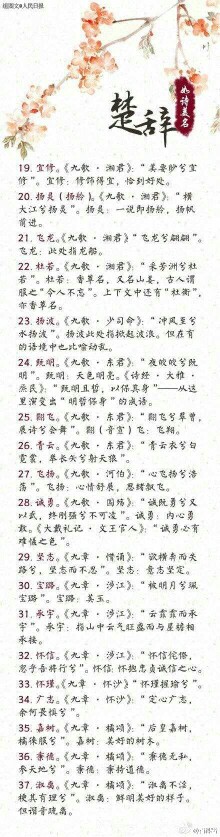 组图文@人民日报
楚辞
如诗美名
19. 宜修。《九歌 · 湘君》：“美要眇兮宜
修”。宜修：修饰得宜，恰到好处。
20. 扬灵（扬舲）。《九歌 · 湘君》：“横
大江兮扬灵”。扬灵：一说即扬舲，扬帆
前进。
21. 飞龙。《九歌 · 湘君》“飞龙兮翩翩”。
飞龙：此处指龙船。
22. 杜若。《九歌 · 湘君》：“采芳洲兮杜
若”。杜若：香草名，又名山姜，古人谓
服之“令人不忘”。上下文中还有“杜衡”，
亦香草名。
23. 扬波。《九歌 · 少司命》：“冲风至兮
水扬波”。扬波此处指掀起波浪。但在有
的语境中也比喻动乱。
24. 既明。《九歌 · 东君》：“夜皎皎兮既
明”。既明：天色明亮。《诗经 · 大雅 ·
烝民》：“既明且哲，以保其身”——从这
里演变出“明哲保身”的成语。
25. 翾飞。《九歌 · 东君》：“翾飞兮翠曾，
展诗兮会舞”。翾（音宣）飞：飞翔。
26. 青云。《九歌 · 东君》：“青云衣兮白
霓裳，举长矢兮射天狼”。
27. 飞扬。《九歌 · 河伯》：“心飞扬兮浩
荡”。飞扬：心情舒展，思绪飘飞。
28. 诚勇。《九歌 · 国殇》“诚既勇兮又
以武，终刚强兮不可凌”。诚勇：内心勇
敢。《大戴礼记 · 文王官人》：“诚勇必有
难慑之色”。
29. 坚志。《九章 · 惜诵》：“欲横奔而失
路兮，坚志而不忍”。坚志：意志坚定。
30. 宝璐。《九章 · 涉江》：“被明月兮珮
宝璐”。宝璐：美玉。
31. 承宇。《九章 · 涉江》：“云霏霏而承
宇”。承宇：指山中云气旺盛而与屋檐相
承接。
32. 怀信。《九章 · 涉江》：“怀信侘傺，
忽乎吾将行兮”。怀信：怀抱忠贞诚信之心。
33. 怀瑾。《九章 · 怀沙》“怀瑾握瑜兮”。
34. 广志。《九章 · 怀沙》：“定心广志，
余何畏惧兮”。
35. 嘉树。《九章 · 橘颂》：“后皇嘉树，
橘徕服兮”。嘉树：美好的树木。
36. 秉德。《九章 · 橘颂》：“秉德无私，
参天地兮”。秉德：秉持道德。
37. 淑离。《九章 · 橘颂》：“淑离不淫，
梗其有理兮”。淑离：鲜明美好的样子。
但谐音疏离。